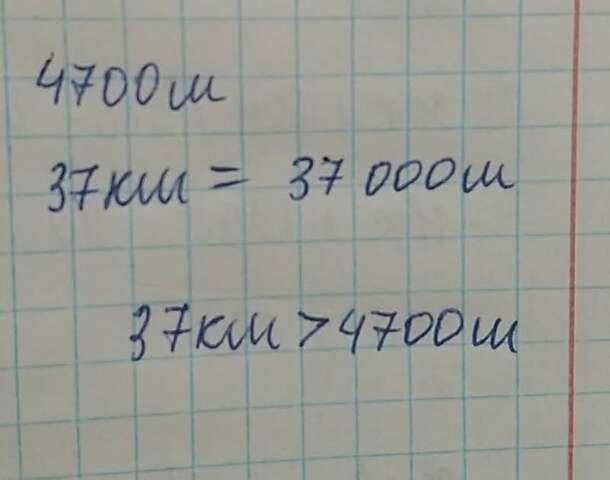 4700м
37км = 37 000м
37км > 4700м